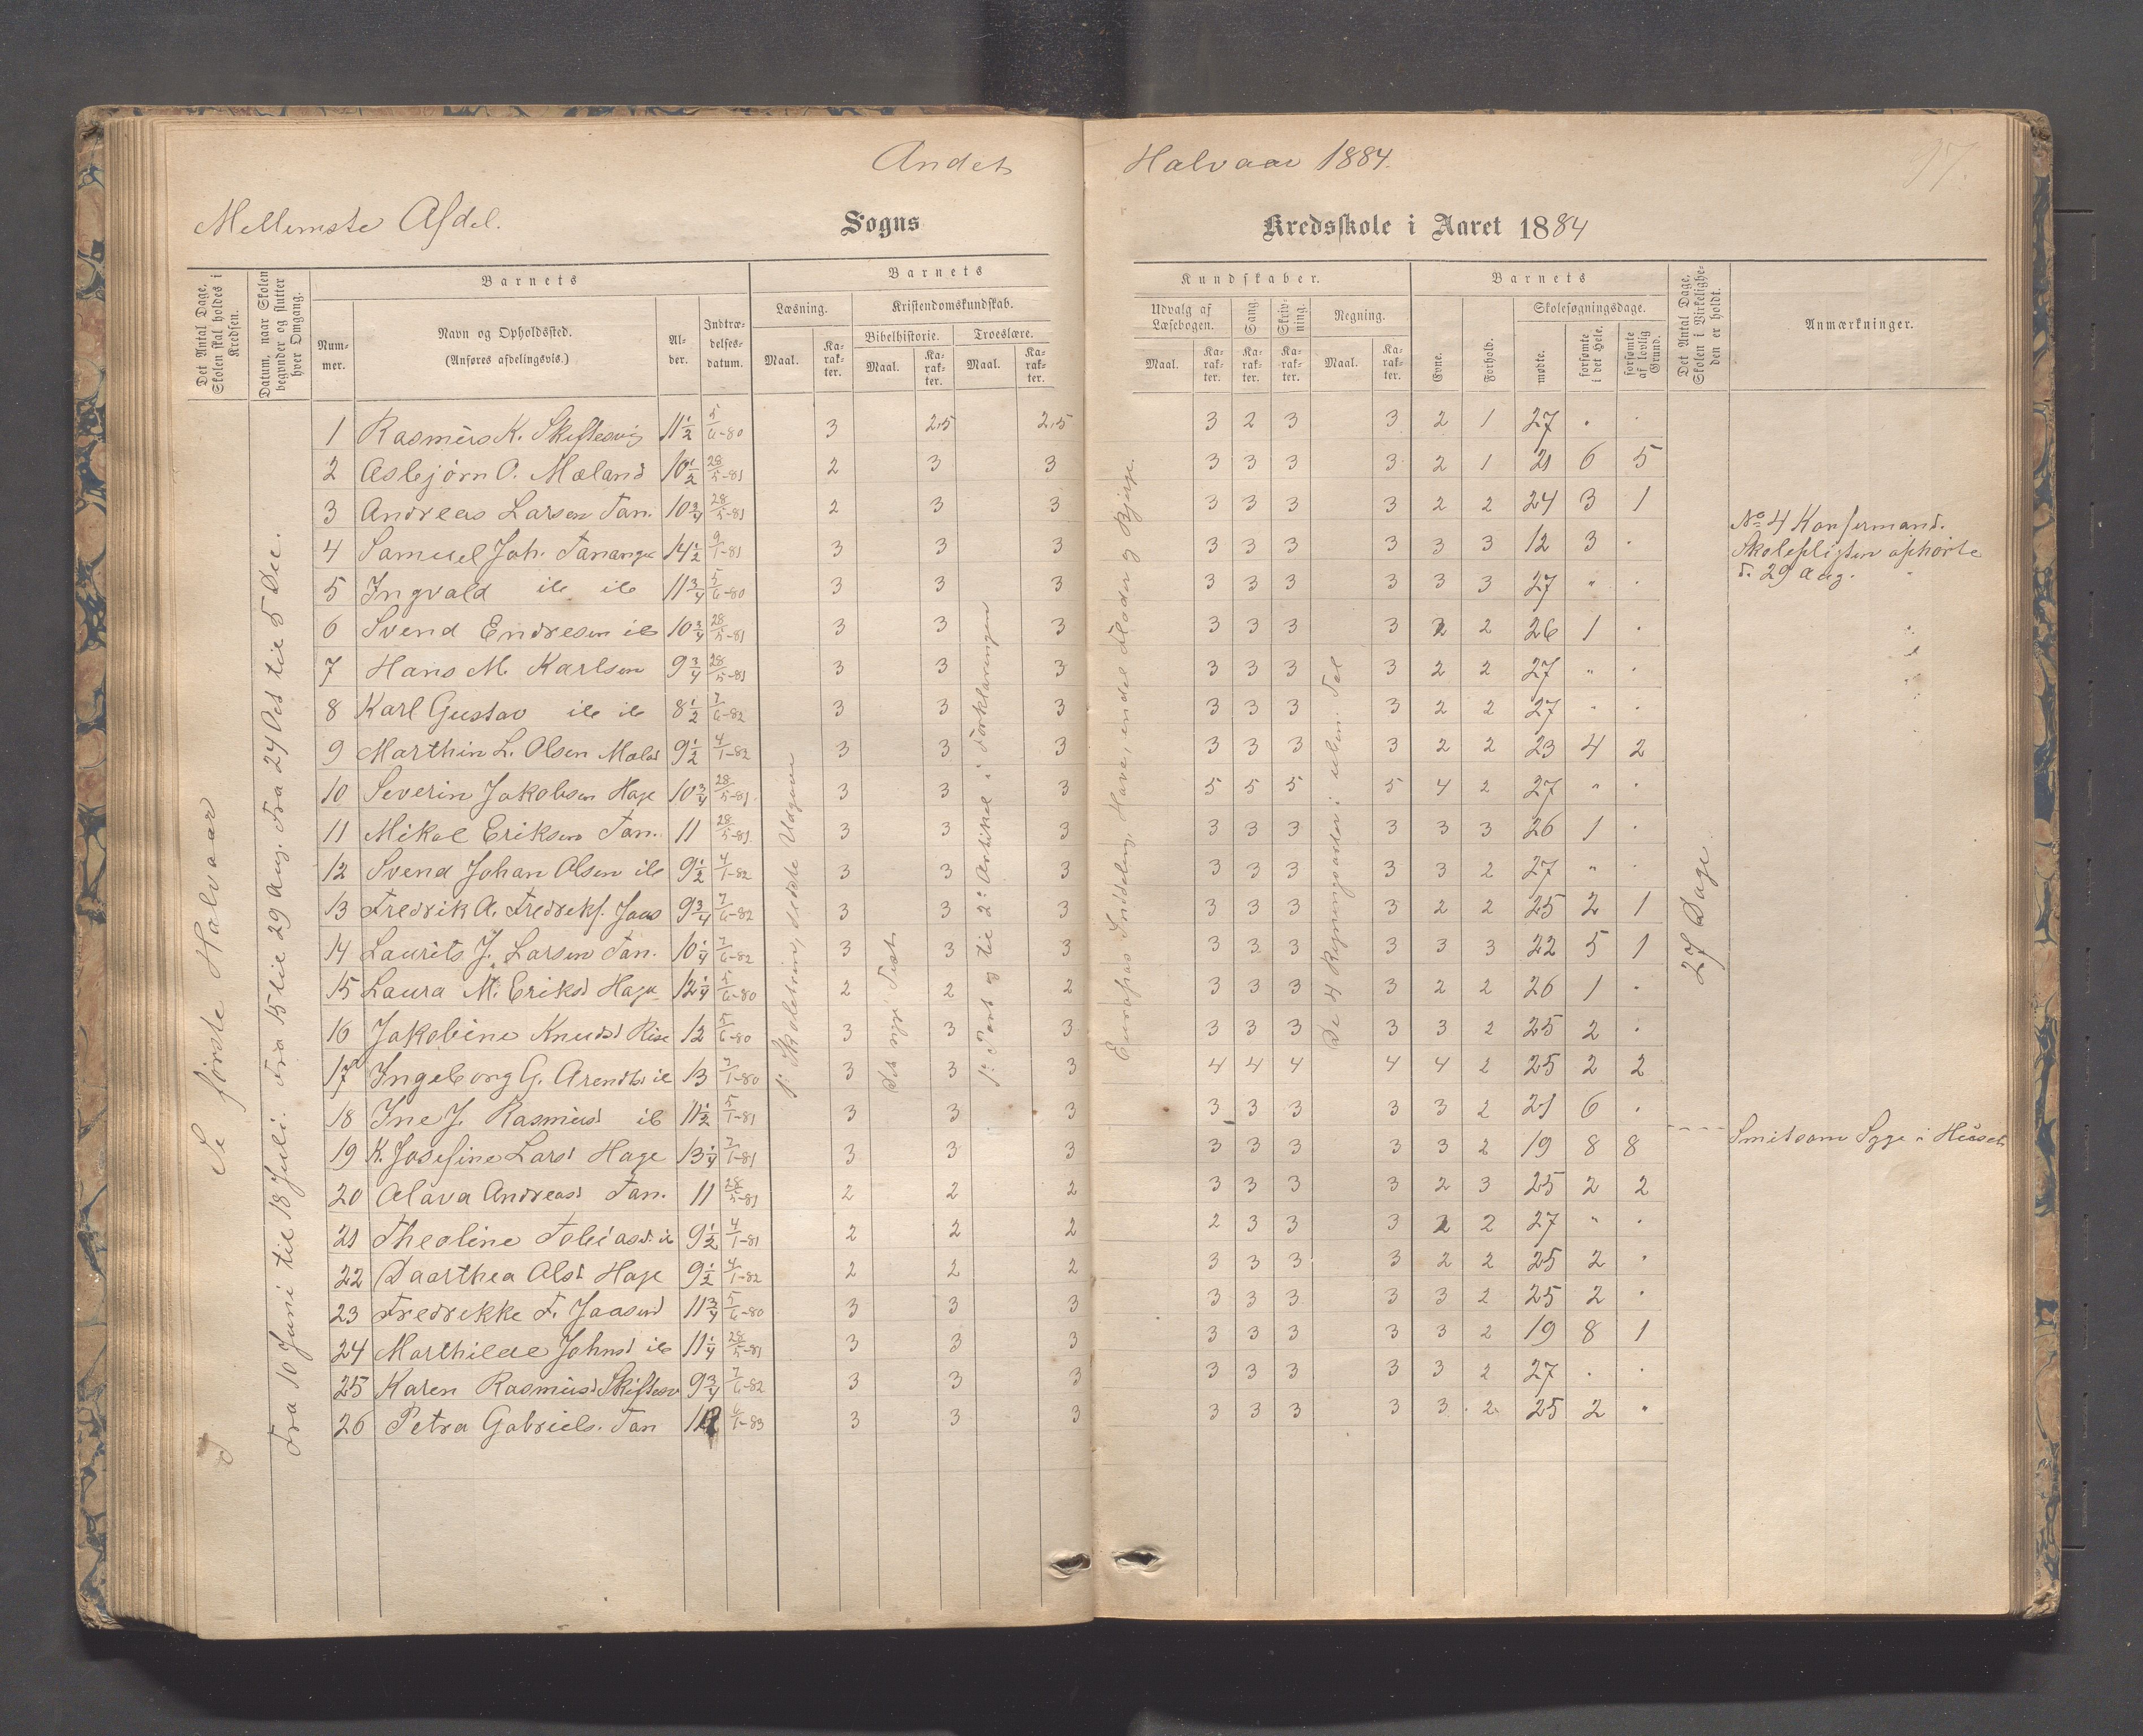 Andet Halvaar 1884.
Mellemste Afdel. Sogns Kredsskole i Aaret 1884
Det Antal Dage, Skolen skal holdes i Kredsen.
Datum, naar Skolen begynder og slutter hver Omgang.
Barnets
Nummer.
Navn og Opholdssted. (Anføres afdelingsvis.)
Alder.
Indtrædelsesdatum.
Barnets Kundskaber.
Læsning. Maal. Karakter.
Kristendomskundskab.
Bibelhistorie. Maal. Karakter.
Troeslære. Maal. Karakter.
Udvalg af Læsebogen. Maal. Karakter.
Sang. Karakter.
Skrivning. Karakter.
Regning. Maal. Karakter.
Barnets
Evne.
Forhold.
Skolesøgningsdage.
mødte.
forsømte i det Hele.
forsømte af lovlig Grund.
Det Antal Dage, Skolen i Virkeligheden er holdt.
Anmærkninger.
Se første Halvaar
Fra 10 Juni til 18 Juli. Fra 15 til 29 Aug. Fra 24 Oct til 5 Dec.
1ste Skoletrin, sidste Udgave
Det nye Test
1ste Part og til 2den Artikel i Forklaringen
Europas Inddeling, Have, endel Floder og Bjerge.
De 4 Regningsarter i uben. Tal
27 Dage
1 Rasmus K. Skiftesvig 11 1/2 5/6-80 3 2,5 2,5 3 2 3 3 2 1 27 . .
2 Asbjørn O. Mæland 10 1/2 28/5-81 2 3 3 3 3 3 3 2 1 21 6 5
3 Andreas Larsen Tan. 10 3/4 28/5-81 2 3 3 3 3 3 3 2 2 24 3 1
4 Samuel Joh. Tananger 14 1/2 9/1-81 3 3 3 3 3 3 3 3 3 12 3 .
No 4 Konfermand. Skolepligten ophørte d. 29 Aug.
5 Ingvald ib ib 11 3/4 5/6-80 3 3 3 3 3 3 3 3 3 27 " .
6 Svend Endresen ib 10 3/4 28/5-81 3 3 3 3 3 3 3 2 2 26 1 .
7 Hans M. Karlsen 9 3/4 28/5-81 3 3 3 3 3 3 3 2 2 27 " .
8 Karl Gustav ib ib 8 1/2 7/6-82 3 3 3 3 3 3 3 2 2 27 " .
9 Marthin L. Olsen Mæld 9 1/2 4/1-82 3 3 3 3 3 3 3 2 2 23 4 2
10 Severin Jakobsen Hage 10 3/4 28/5-81 3 3 3 5 5 5 5 4 2 27 " .
11 Mikal Eriksen Tan. 11 28/5-81 3 3 3 3 3 3 3 3 3 26 1 .
12 Svend Johan Olsen ib 9 1/2 4/1-82 3 3 3 3 3 3 3 3 2 27 " .
13 Fredrik A. Fredriks. Jaas 9 3/4 7/6-82 3 3 3 3 3 3 3 2 2 25 2 1
14 Laurits J. Larsen Tan. 10 1/4 7/6-82 3 3 3 3 3 3 3 3 3 22 5 1
15 Laura M. Eriksd Haga 12 1/4 5/6-80 2 2 2 3 3 3 3 2 2 26 1 .
16 Jakobine Knudsd Risa 12 5/6-80 3 3 3 3 3 3 3 3 2 25 2 .
17 Ingeborg G. Arendtsd ib 13 7/1-80 3 3 3 4 4 4 4 4 2 25 2 2
18 Ine J. Rasmusd ib 11 1/2 5/1-81 3 3 3 3 3 3 3 3 2 21 6 .
19 K. Josefine Larsd Hage 13 1/4 7/1-81 3 3 3 3 3 3 3 3 2 19 8 8 Smitsom Syge i Huset
20 Olava Andreasd Tan. 11 28/5-81 2 2 2 3 3 3 3 2 3 25 2 2
21 Theoline Tobiasd. ib 9 1/2 4/1-81 2 2 2 2 3 3 3 2 2 27 " .
22 Daarthea Olsd Hage 9 1/2 4/1-82 2 2 2 3 3 3 3 2 2 25 2 .
23 Fredrekke F. Jaasund 11 3/4 5/6-80 3 3 3 3 3 3 3 3 2 25 2 .
24 Marthilde Johnsd ib 11 1/4 28/5-81 3 3 3 3 3 3 3 3 2 19 8 1
25 Karen Rasmusd Skiftesv 9 3/4 7/6-82 3 3 3 3 3 3 3 3 2 27 . .
26 Petra Gabriels. Tan 6/1-83 3 3 3 3 3 3 3 3 2 25 2 .